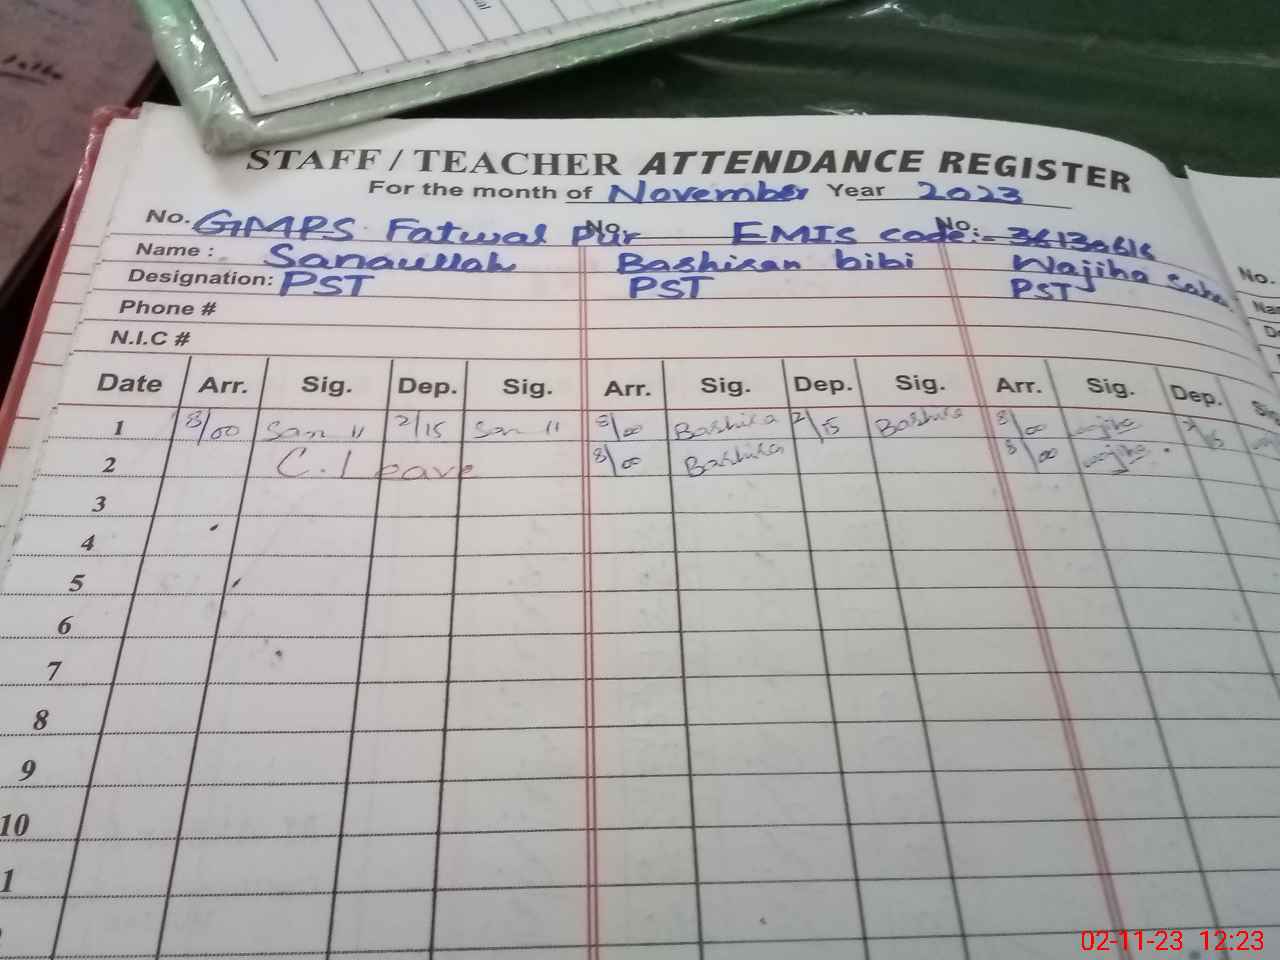 STAFF / TEACHER ATTENDANCE REGISTER
For the month of November Year 2023
No. GMPS Fatwal Pur No. EMIS code:- No.
No.
Name : Sanaullah Bashiran bibi Wajiha
Designation: PST PST PST
Phone #
N.I.C #
Date Arr. Sig. Dep. Sig. Arr. Sig. Dep. Sig. Arr. Sig. Dep.
1 8/00 San 11 2/15 San 11 8/00 Bashira 2/15 Bashira 8/00 wajiha 2/15
2 C. Leave 8/00 Bashira 8/00 wajiha
3
4
5
6
7
8
9
10
1
02-11-23 12:23